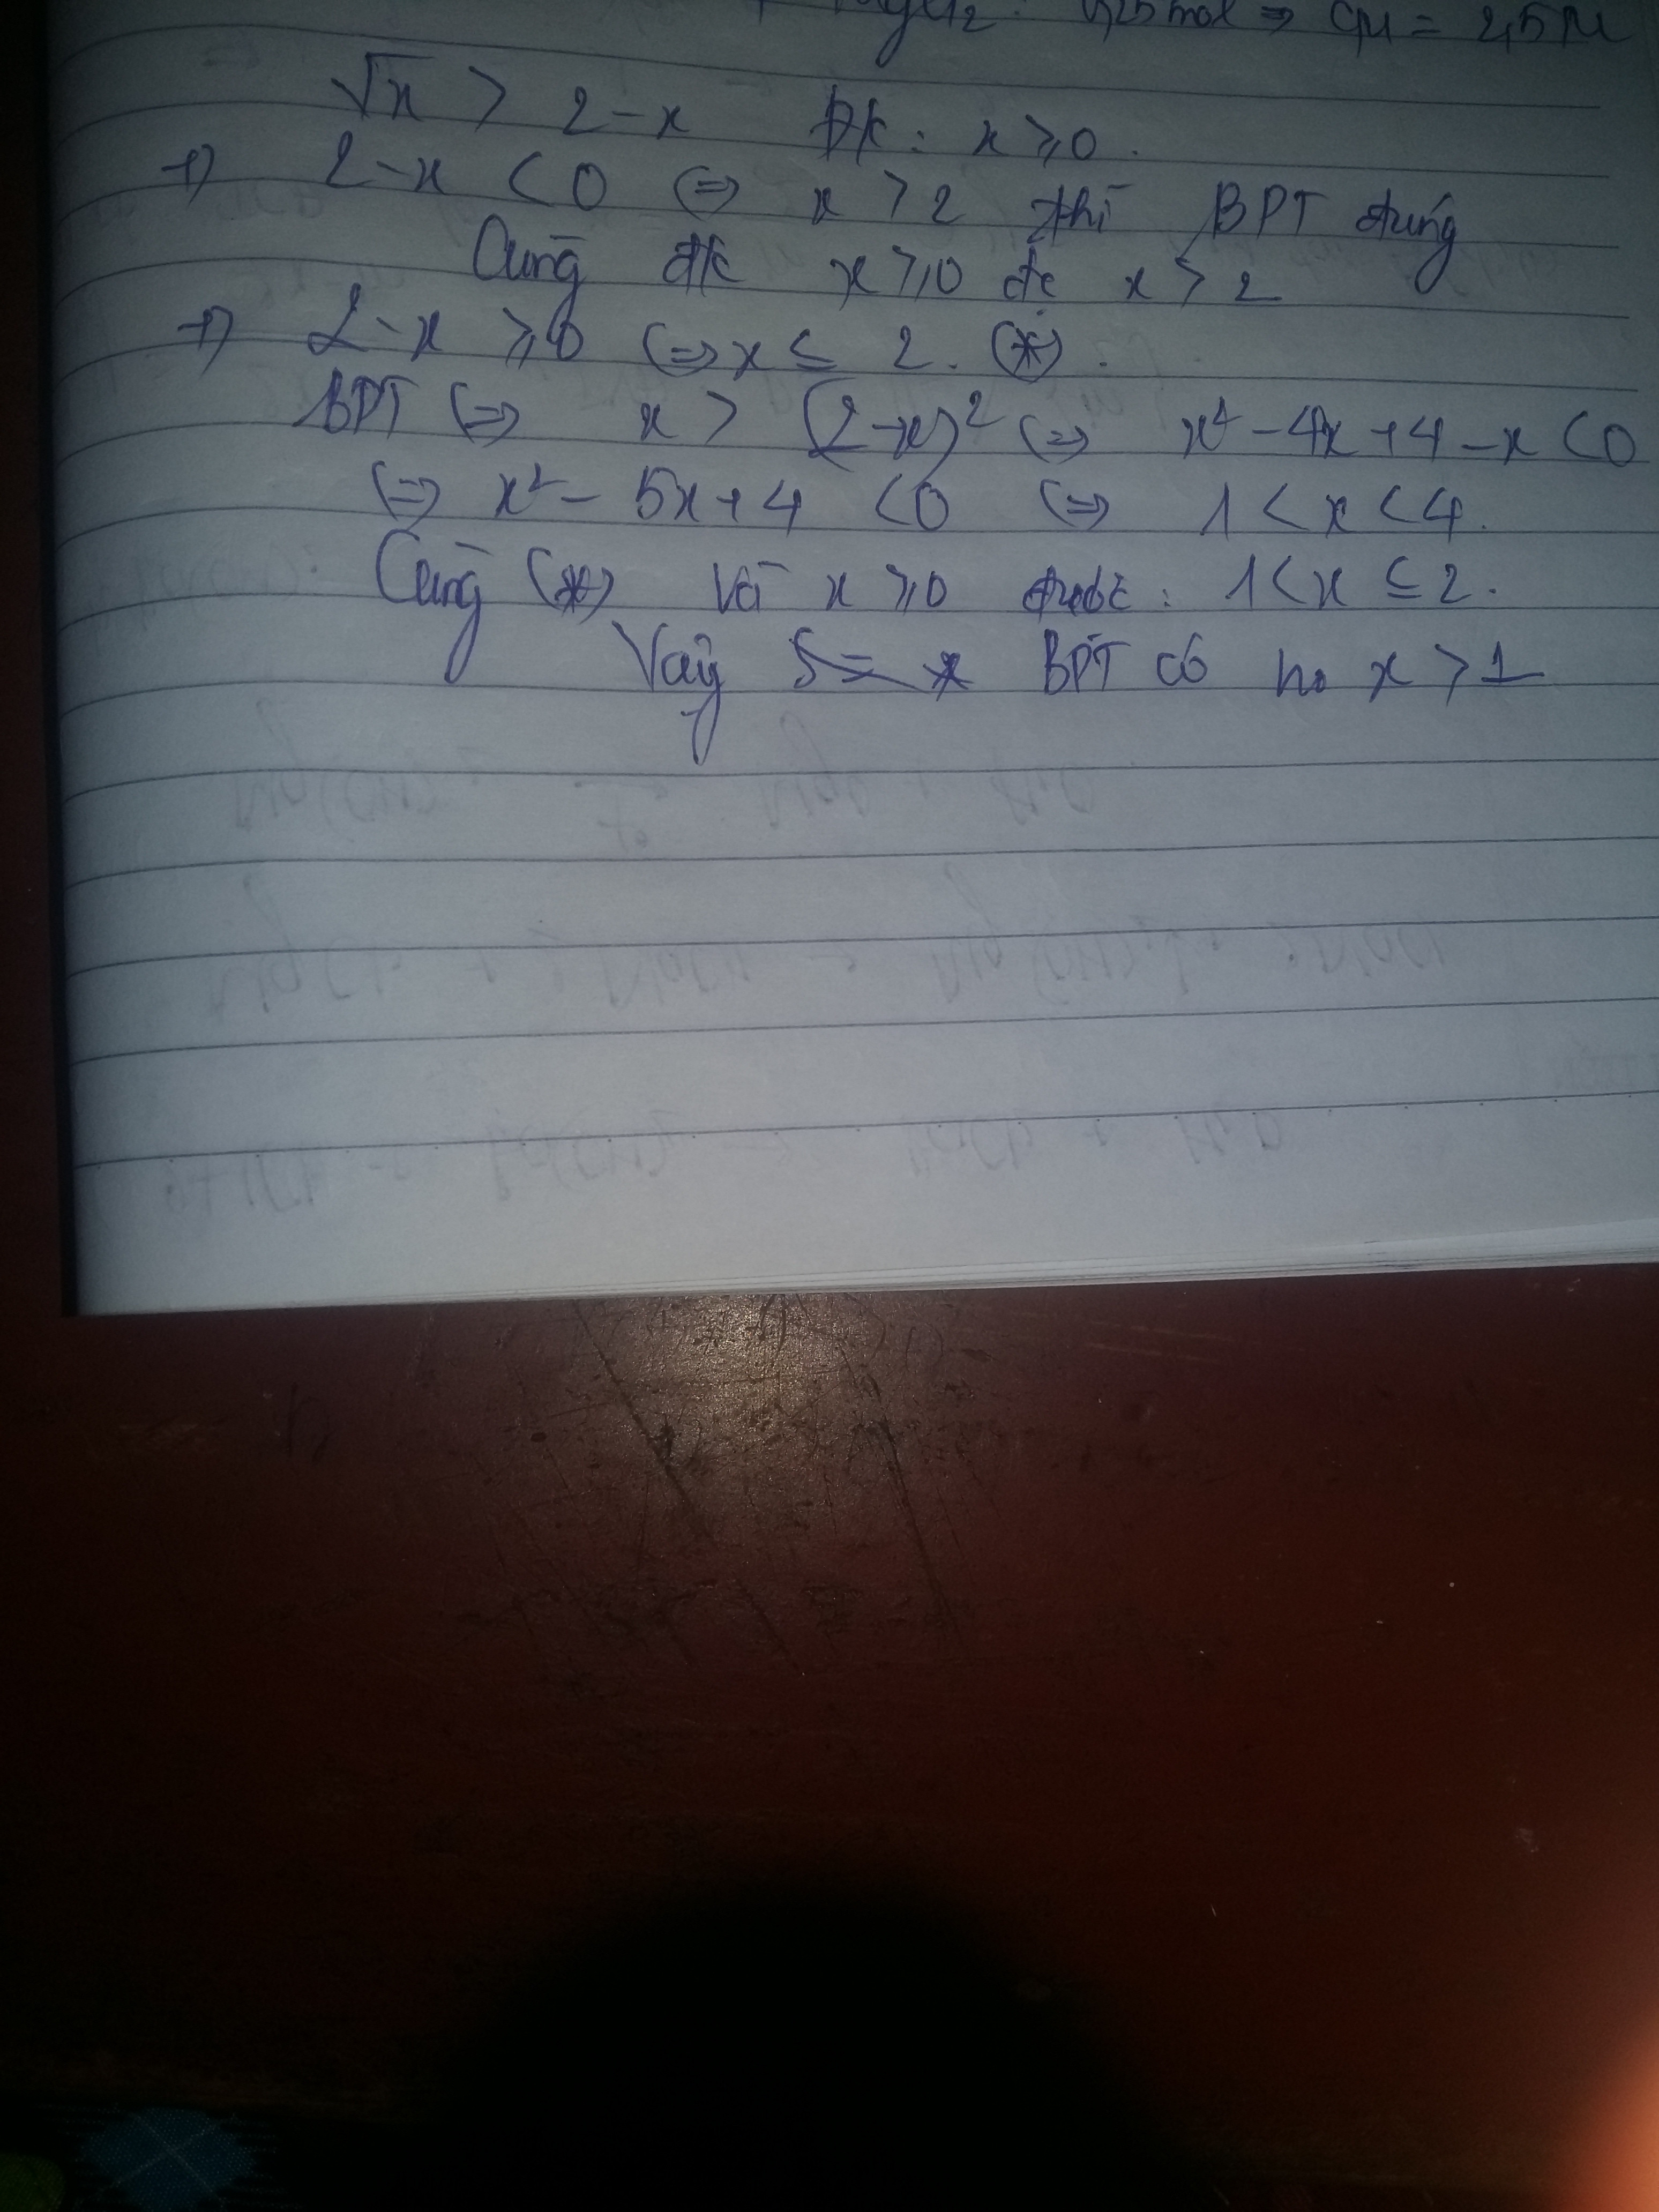 0,25 mol ⇒ CM = 2,5M
√x > 2-x ĐK: x ⩾ 0.
+) 2-x < 0 (=) x > 2 thì BPT đúng
Cùng đk x ⩾ 0 đc x > 2
+) 2-x ⩾ 0 (=) x ≤ 2. (*).
BPT (=) x > (2-x)² (=) x² - 4x + 4 - x < 0
(=) x² - 5x + 4 < 0 (=) 1 < x < 4.
Cùng (*) và x ⩾ 0 được: 1 < x ≤ 2.
Vậy BPT có no x > 1